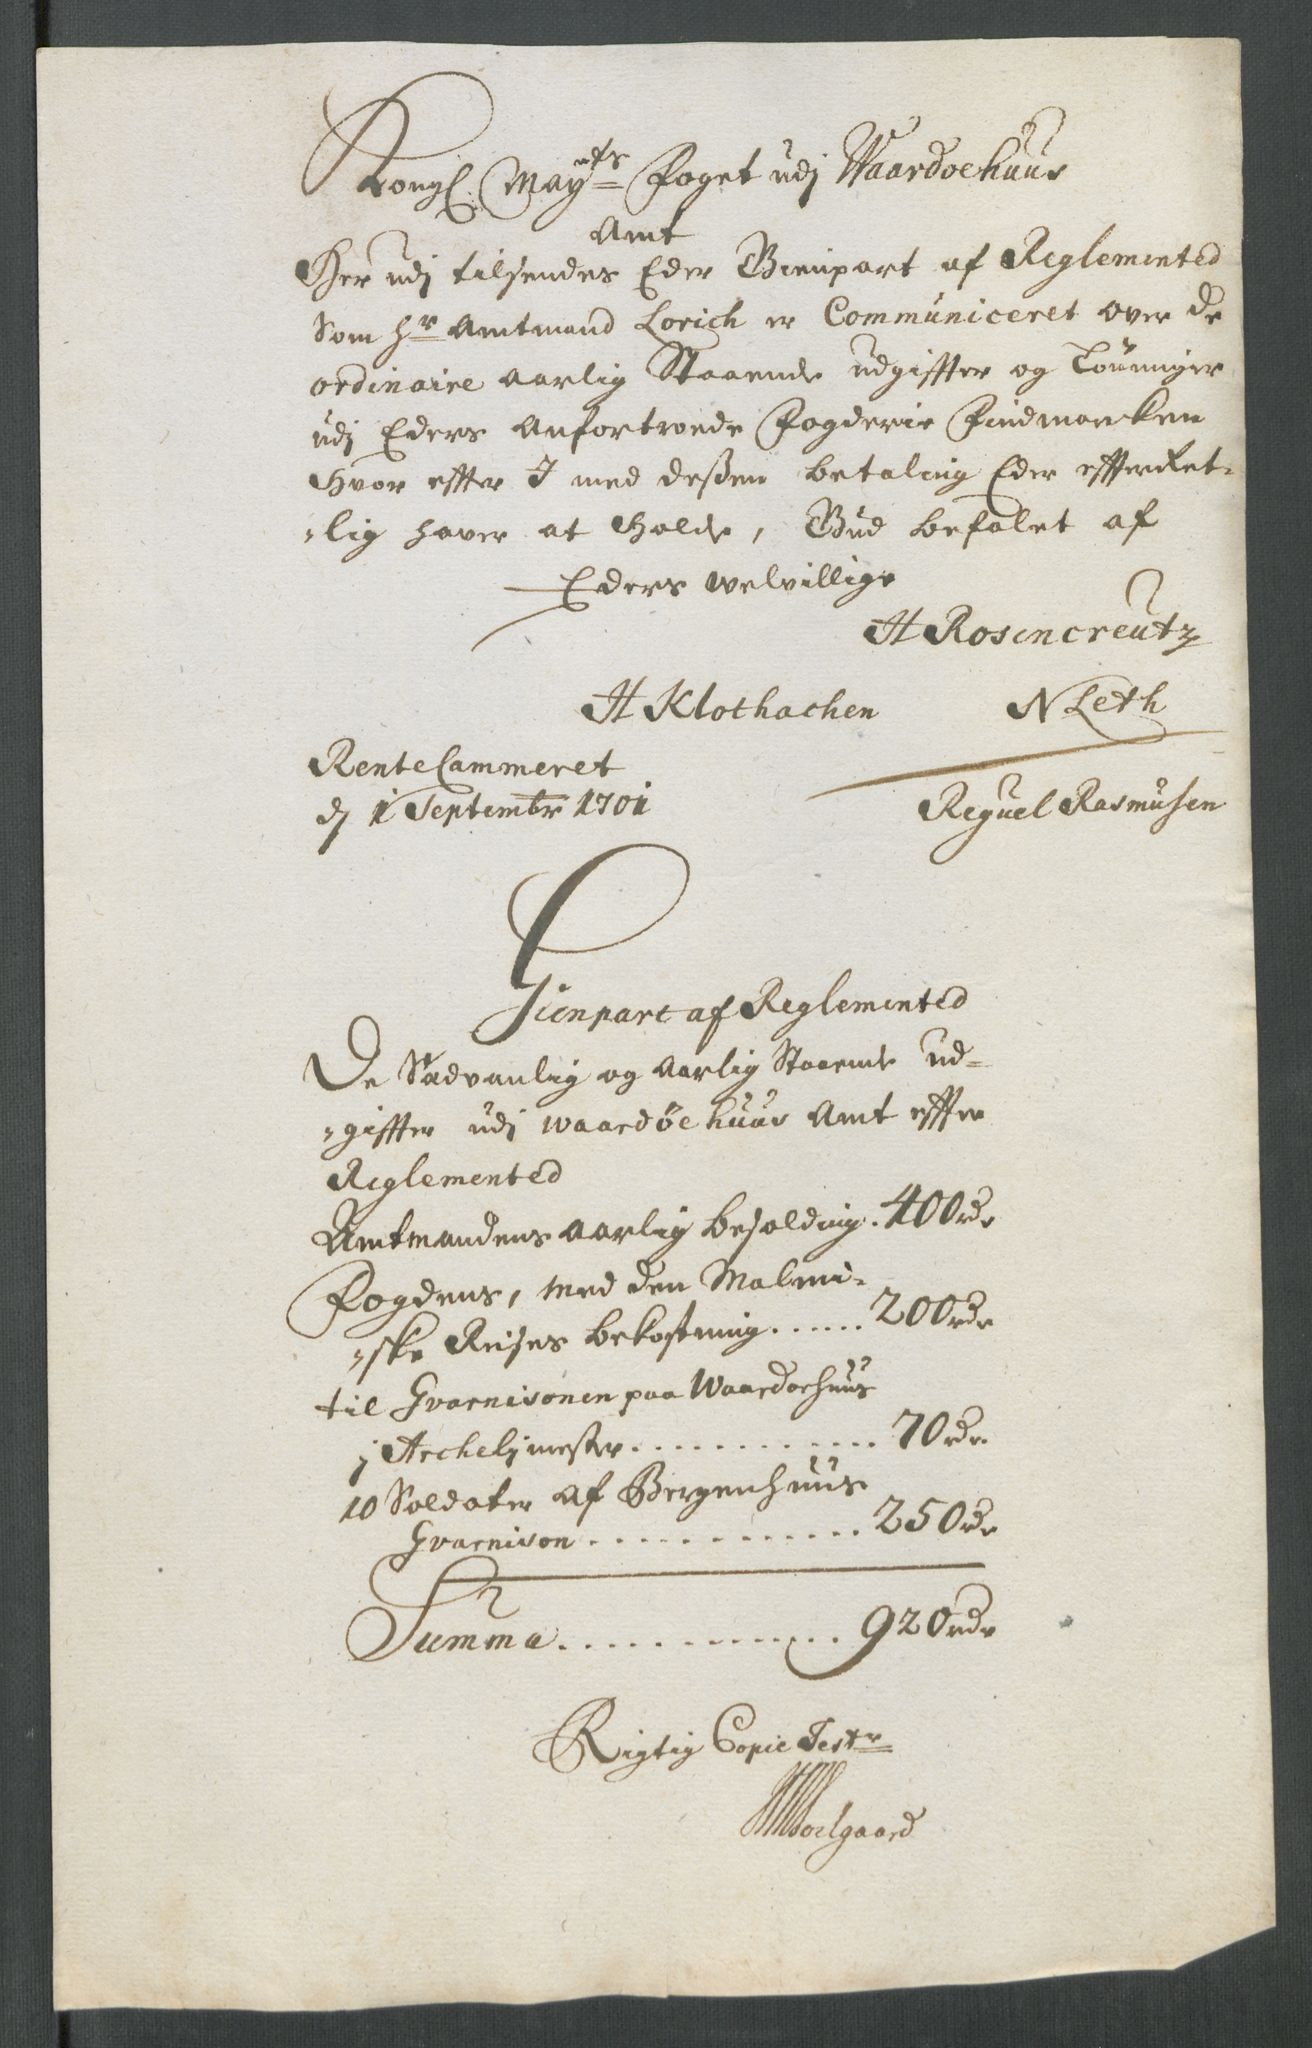 Kongl. May:ts Foget udj Waardoehuus
Amt
Her udj tilsendes Eder Gienpart af Reglemented
Som Hr Amtmand Lorich er Communiceret over de
ordinaire aarlig Staaende udgiffter og Lønninger
udj Eders anfortroede Fogderie Findmarcken
Hvor effter I med deßen betaling Eder effterret-
-lig haver at Holde, Gud befalet af
Eders welvillige
H Rosencreutz
H Klothachen N Leth
RenteCammeret
d 1 Septembr 1701 Reguel Rasmusen
Gienpart af Reglemented
De Sædvanlig og aarlig Staaende ud-
-giffter udj waardøehuus Amt effter
Reglemented
Amtmandens aarlig besolding. 400 rdr
Fogdens, med den Malmi-
-ske Reises bekostning...... 200 rdr
til Gvarnisonen paa Waardoehuus
j Archelj mester............. 70 rdr.
10 Soldater af Bergenhuus
Gvarnison............. 250 rdr
Summa............. 920 rdr
Rigtig Copie Testr